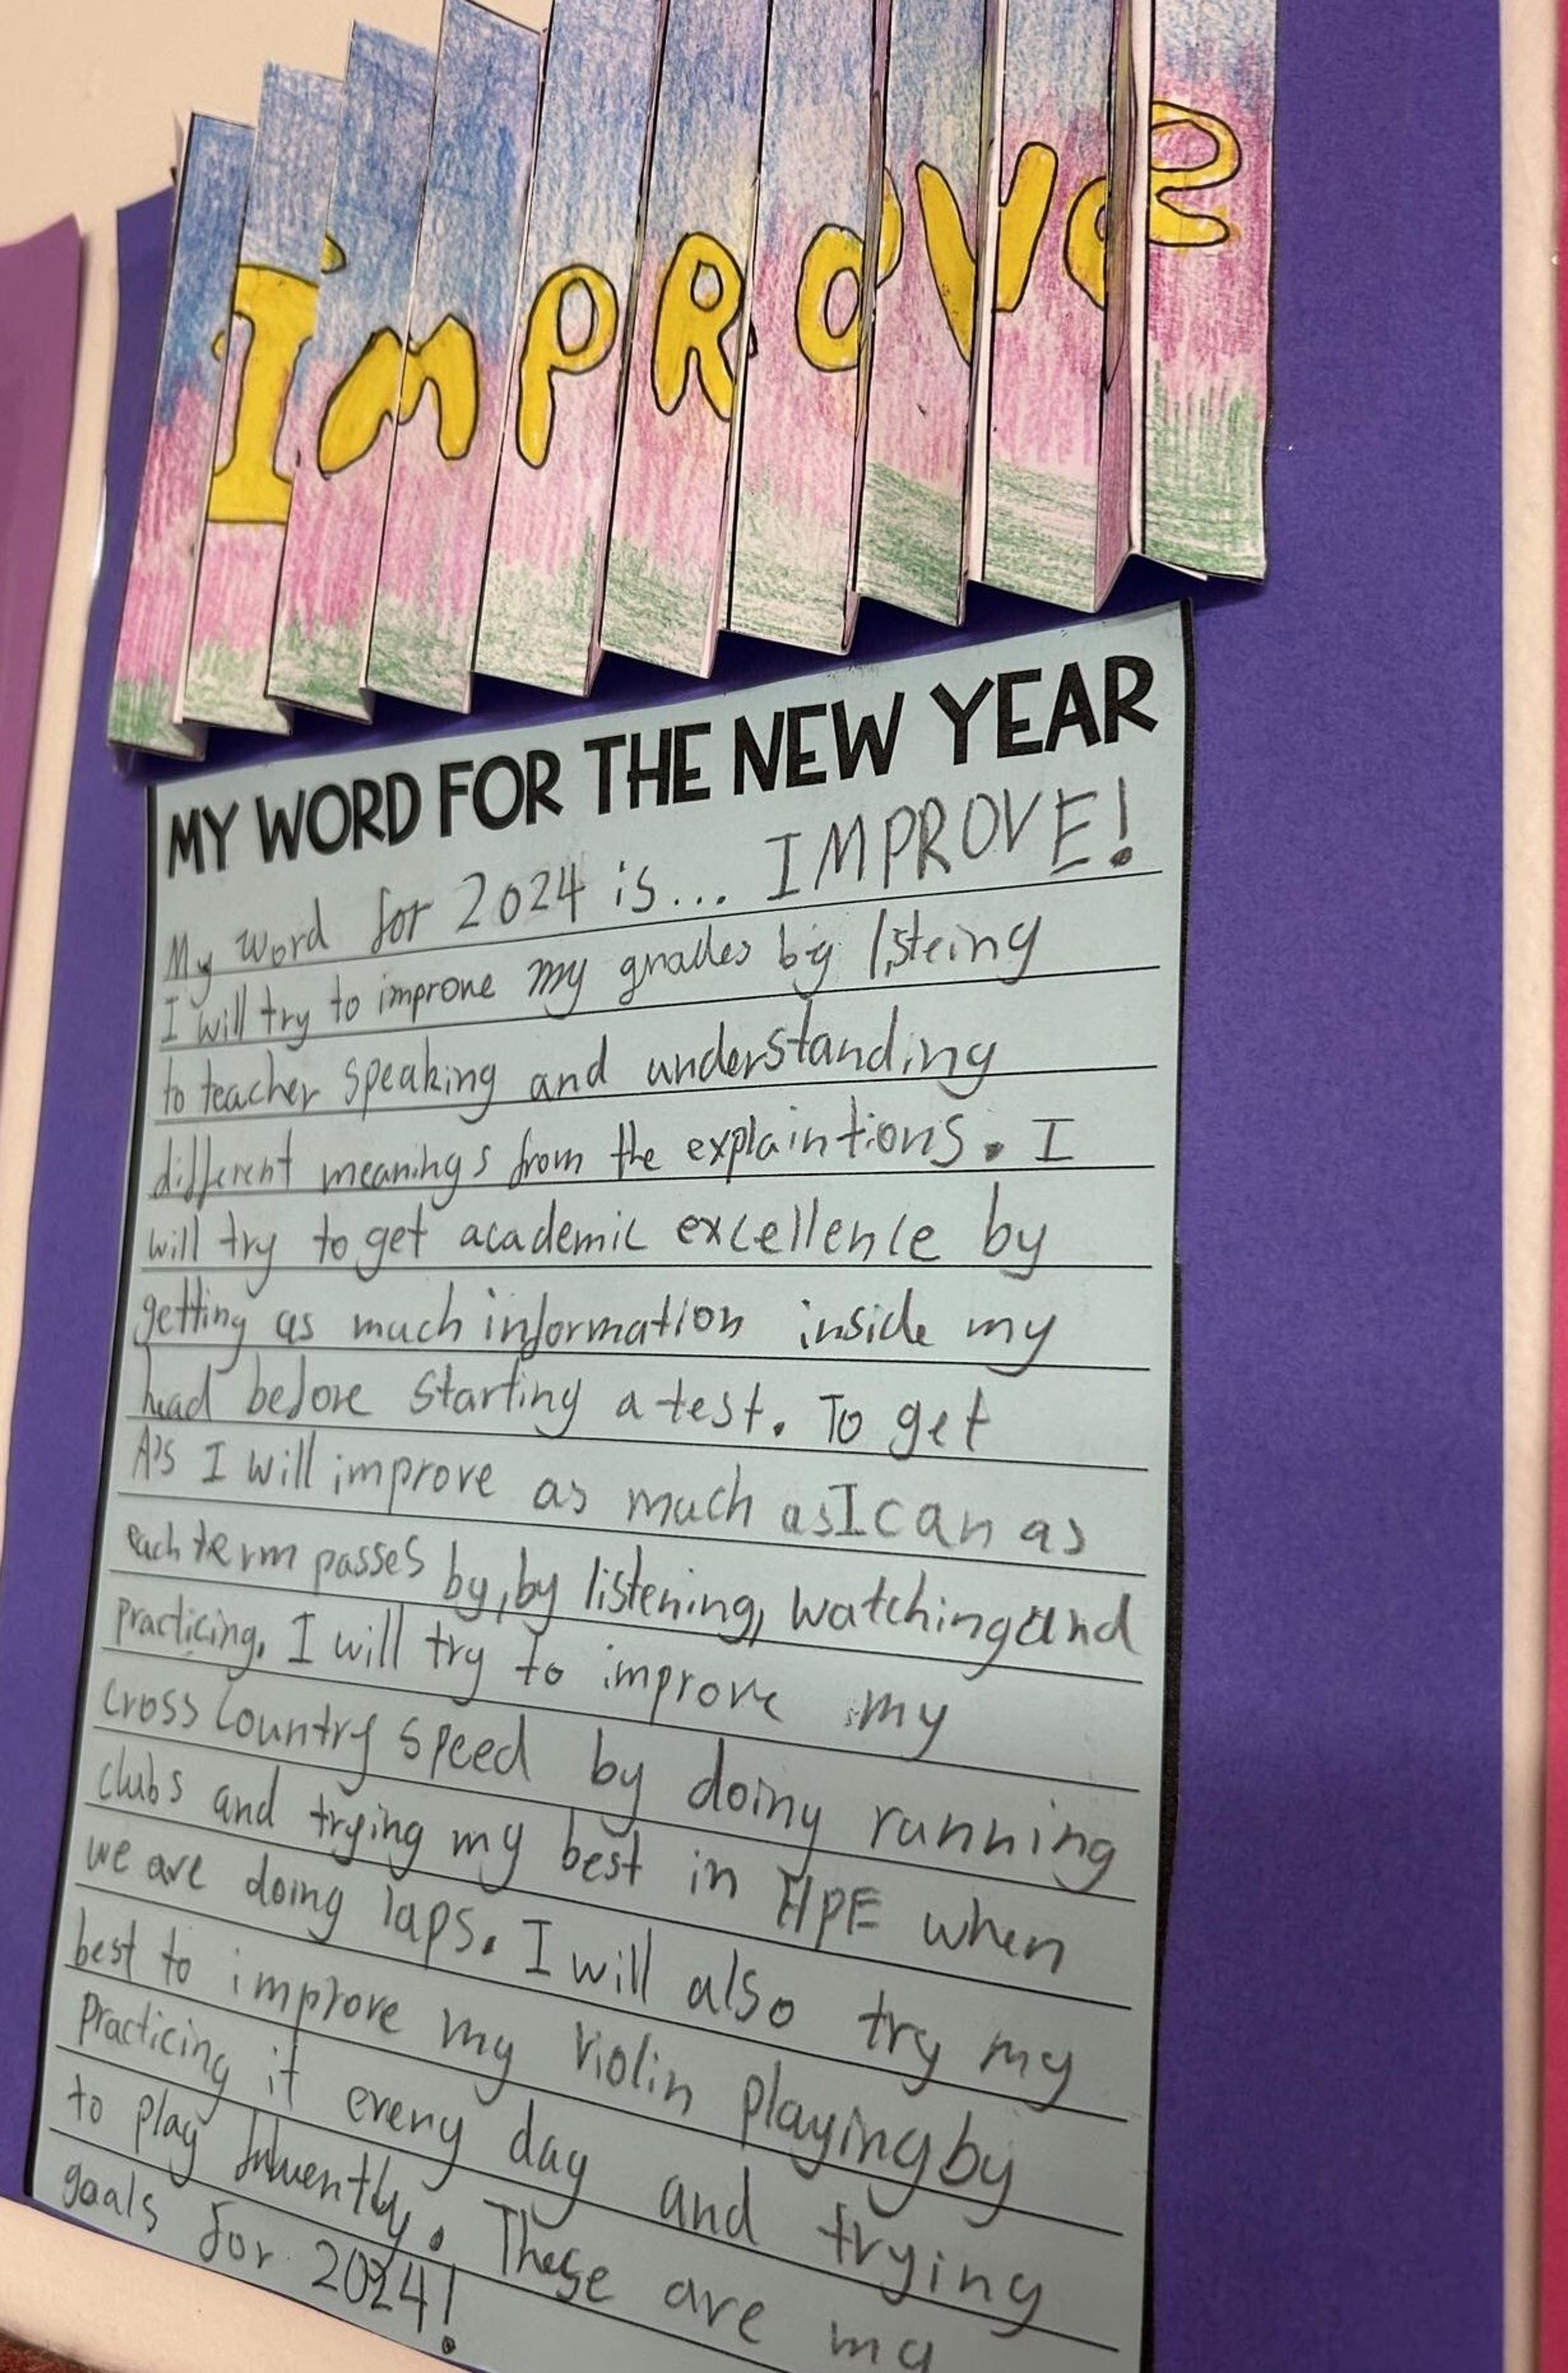 ImPRoVe
MY WORD FOR THE NEW YEAR
My word for 2024 is... IMPROVE!
I will try to improve my grades by listeing
to teacher speaking and understanding
different meanings from the explaintions. I
will try to get academic excellence by
getting as much information inside my
head before starting a test. To get
A's I will improve as much as I can as
each term passes by, by listening, watching and
practicing. I will try to improve my
cross country speed by doing running
clubs and trying my best in HPE when
we are doing laps. I will also try my
best to improve my violin playing by
practicing it every day and trying
to play These are my
goals for 2024!